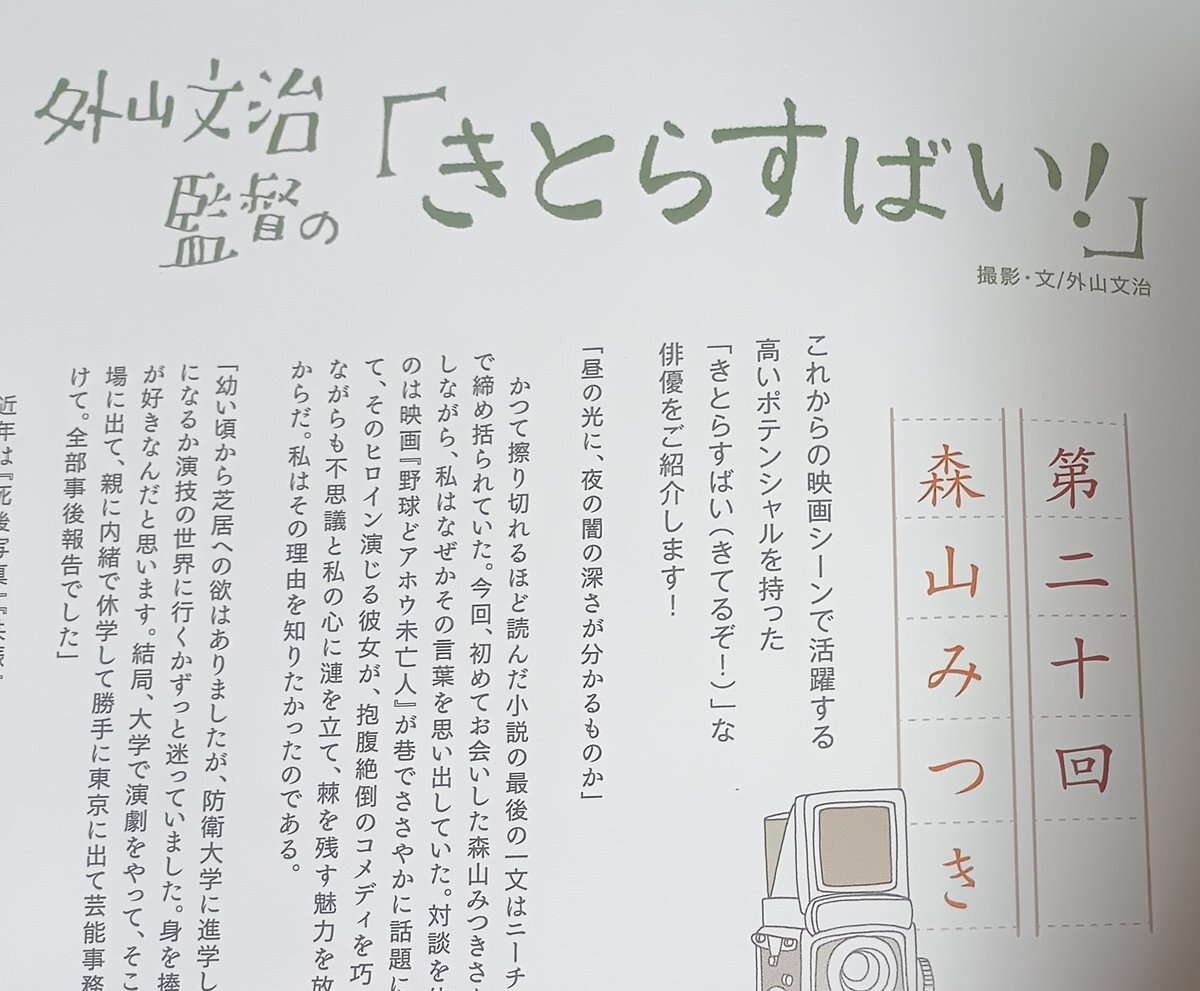 外山文治
監督の
「きとらすばい!」
撮影・文/外山文治
第二十回
森山みつき
これからの映画シーンで活躍する
高いポテンシャルを持った
「きとらすばい(きてるぞ!)」な
俳優をご紹介します!
「昼の光に、夜の闇の深さが分かるものか」
かつて擦り切れるほど読んだ小説の最後の一文はニーチ
で締め括られていた。今回、初めてお会いした森山みつきさ
しながら、私はなぜかその言葉を思い出していた。対談を
のは映画『野球どアホウ未亡人』が巷でささやかに話題に
て、そのヒロイン演じる彼女が、抱腹絶倒のコメディを巧
ながらも不思議と私の心に漣を立て、棘を残す魅力を放
からだ。私はその理由を知りたかったのである。
「幼い頃から芝居への欲はありましたが、防衛大学に進学し
になるか演技の世界に行くかずっと迷っていました。身を捧
が好きなんだと思います。結局、大学で演劇をやって、そこ
場に出て、親に内緒で休学して勝手に東京に出て芸能事務
けて。全部事後報告でした」
近年は『死後写真』